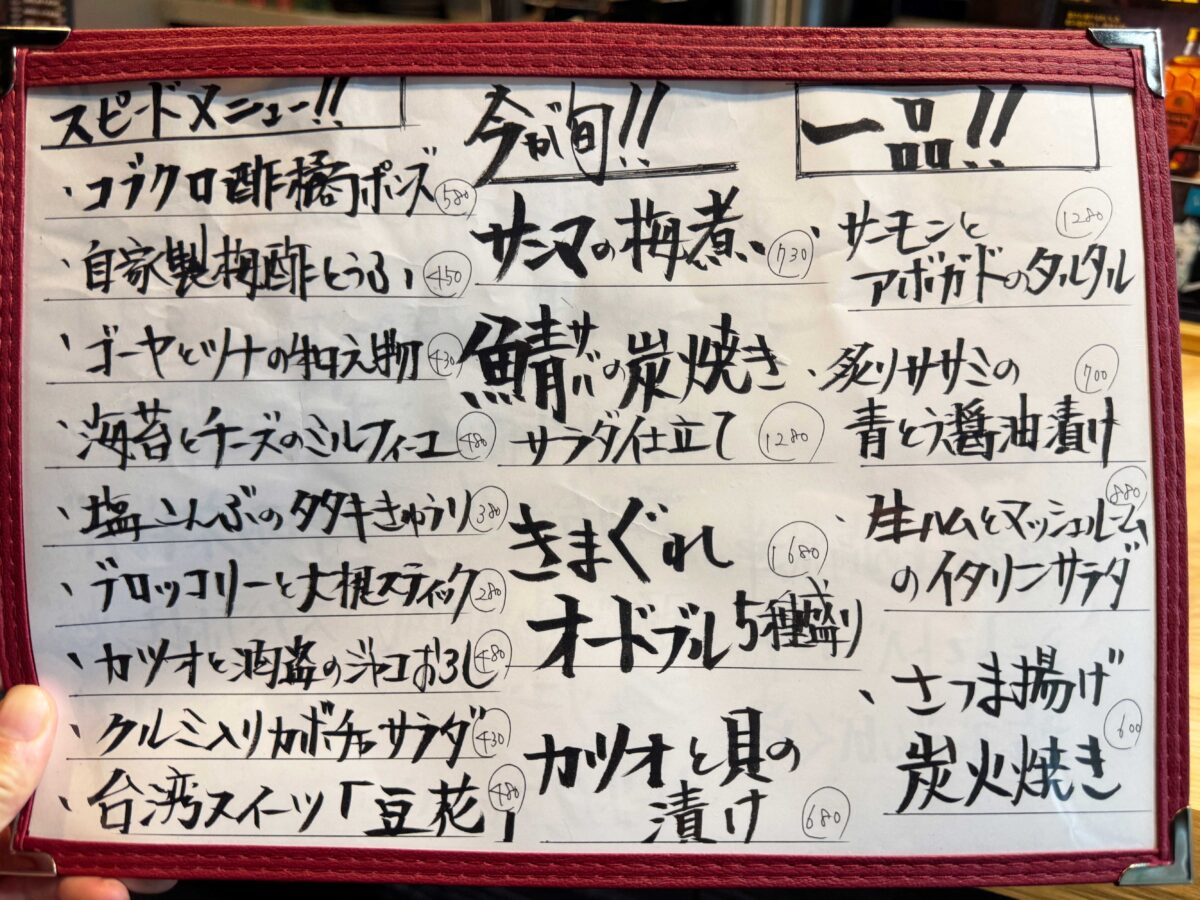 スピードメニュー!!
・コブクロ酢橘ポンズ 580
・自家製梅酢とうふ 450
・ゴーヤとツナの和え物 430
・海苔とチーズのミルフィーユ 480
・塩こんぶのタタキきゅうり 380
・ブロッコリーと大根スティック 280
・カツオと酒盗のジャコおろし 480
・クルミ入りカボチャサラダ 430
・台湾スイーツ「豆花」 480
今が旬!!
サンマの梅煮 730
鯖サバの炭焼き
サラダ仕立て 1280
きまぐれ 1680
オードブル5種盛り
カツオと貝の
漬け 680
一品!!
・サーモンと 1280
アボガドのタルタル
・炙りササミの 700
青とう醤油漬け
・生ハムとマッシュルーム 880
のイタリーンサラダ
・さつま揚げ 600
炭火焼き